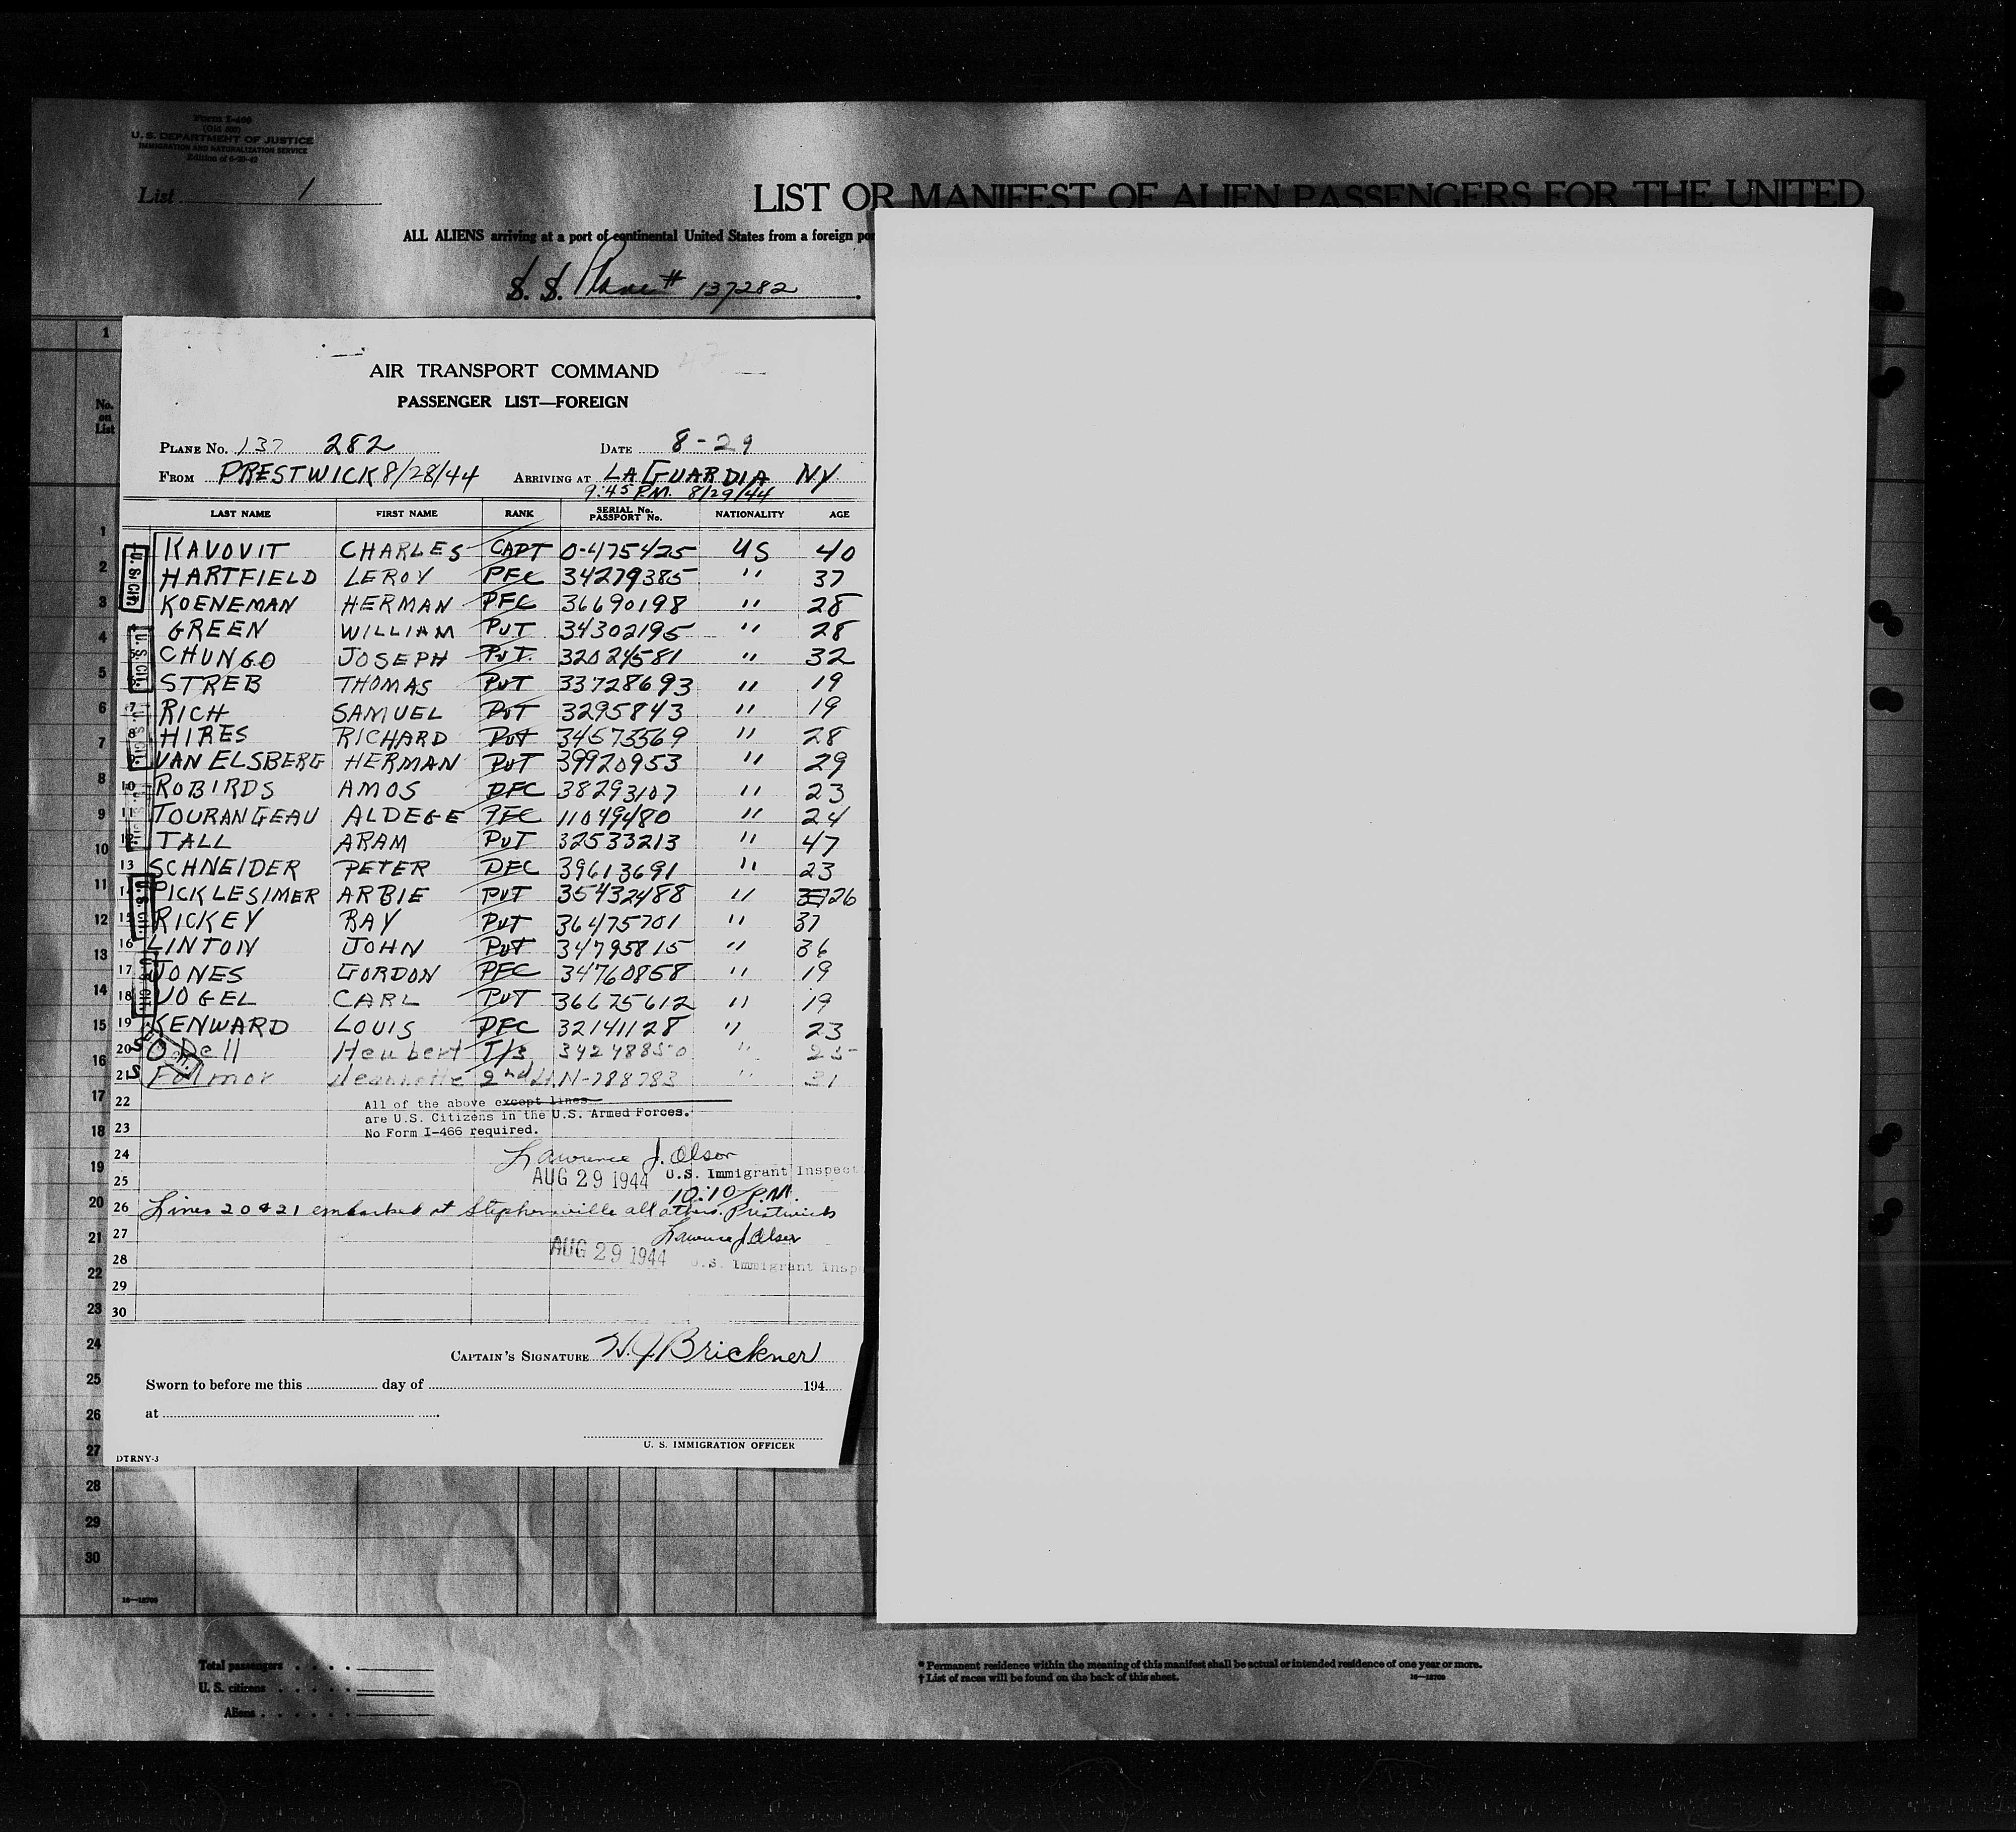 Form I-466
(Old 507)
U. S. DEPARTMENT OF JUSTICE
IMMIGRATION AND NATURALIZATION SERVICE
List 1
LIST OR MANIFEST OF ALIEN PASSENGERS FOR THE UNITED
ALL ALIENS arriving at a port of continental United States from a foreign por
S. S. Plane # 137282
1
No. on List
AIR TRANSPORT COMMAND
PASSENGER LIST—FOREIGN
PLANE No. 137 282 DATE 8-29
FROM PRESTWICK 8/28/44 ARRIVING AT LAGUARDIA NY
9:45 P.M. 8/29/44
LAST NAME FIRST NAME RANK SERIAL No. PASSPORT No. NATIONALITY AGE
KAVOVIT CHARLES CAPT 0-475425 US 40
HARTFIELD LEROY PFC 34279385 " 37
KOENEMAN HERMAN PFC 36690198 " 28
GREEN WILLIAM PVT 34302195 " 28
CHUNGO JOSEPH PVT. 32024581 " 32
STREB THOMAS PVT 33728693 " 19
7 RICH SAMUEL PVT 3295843 " 19
8 HIRES RICHARD PVT 34573569 " 28
VAN ELSBERG HERMAN PVT 39920953 " 29
10 ROBIRDS AMOS PFC 38293107 " 23
11 TOURANGEAU ALDEGE PFC 11049480 " 24
12 TALL ARAM PVT 32533213 " 47
13 SCHNEIDER PETER PFC 39613691 " 23
14 PICKLESIMER ARBIE PVT 35432488 " 26
15 RICKEY RAY PVT 36475701 " 37
16 LINTON JOHN PVT 34795815 " 36
17 JONES GORDON PFC 34760858 " 19
18 VOGEL CARL PVT 36675612 " 19
19 KENWARD LOUIS PFC 32141128 " 23
20 O'Dell Heubert T/3 34248850 " 25
21 Folmor Jeannette 2nd Lt N-788783 " 31
22 All of the above except lines
are U.S. Citizens in the U.S. Armed Forces.
23 No Form I-466 required.
24 Lawrence J. Olson
25 AUG 29 1944 U.S. Immigrant Inspect
10:10 P.M.
26 Lines 20 & 21 embarked at Stephenville all others Prestwick
27 Lawrence J Olson
28 AUG 29 1944 U.S. Immigrant Insp
29
30
CAPTAIN'S SIGNATURE W J Brickner
Sworn to before me this day of 194
at
U. S. IMMIGRATION OFFICER
DTRNY-3
U. S. CIT.
U. S. CIT.
U. S. CIT.
U. S. CIT.
U. S. CIT.
1
2
3
4
5
6
7
8
9
10
11
12
13
14
15
16
17
18
19
20
21
22
23
24
25
26
27
28
29
30
16—18700
Total passengers
U. S. citizens
Aliens
* Permanent residence within the meaning of this manifest shall be actual or intended residence of one year or more.
† List of races will be found on the back of this sheet.
16—18700